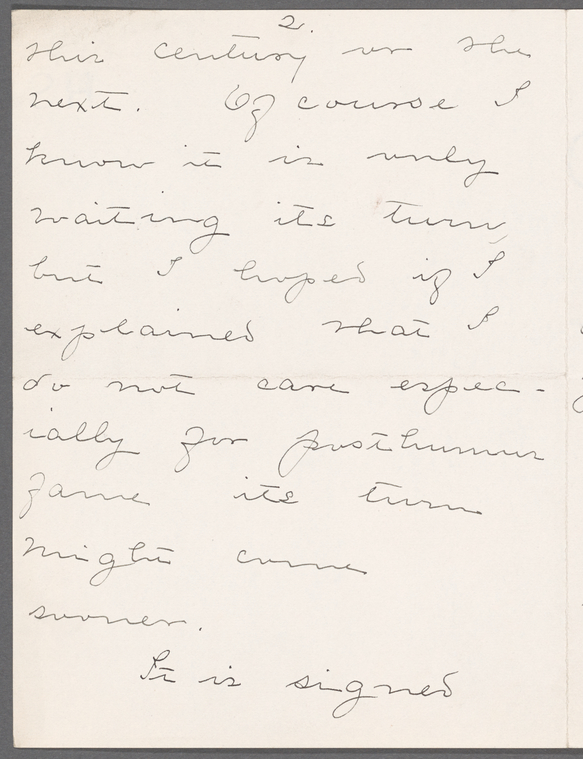 2.
this century or the
next. Of course I
know it is only
waiting its turn,
but I hoped if I
explained that I
do not care espec-
ially for posthumus
fame its turn
might come
sooner.
It is signed